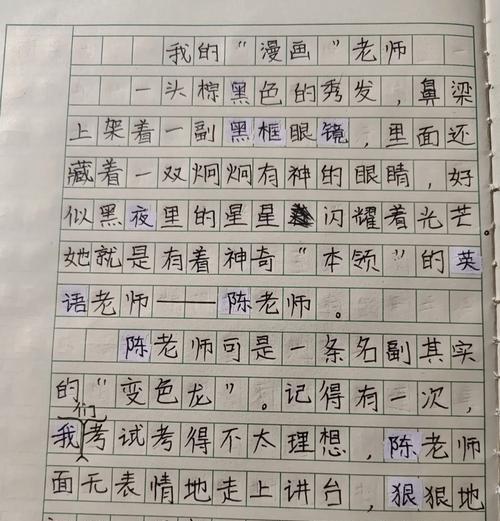 我的“漫画”老师
一头棕黑色的秀发，鼻梁
上架着一副黑框眼镜，里面还
藏着一双炯炯有神的眼睛，好
似黑夜里的星星闪耀着光芒。
她就是有着神奇“本领”的英
语老师——陈老师。
陈老师可是一条名副其实
的“变色龙”。记得有一次，
我们考试考得不太理想，陈老师
面无表情地走上讲台，狠狠地